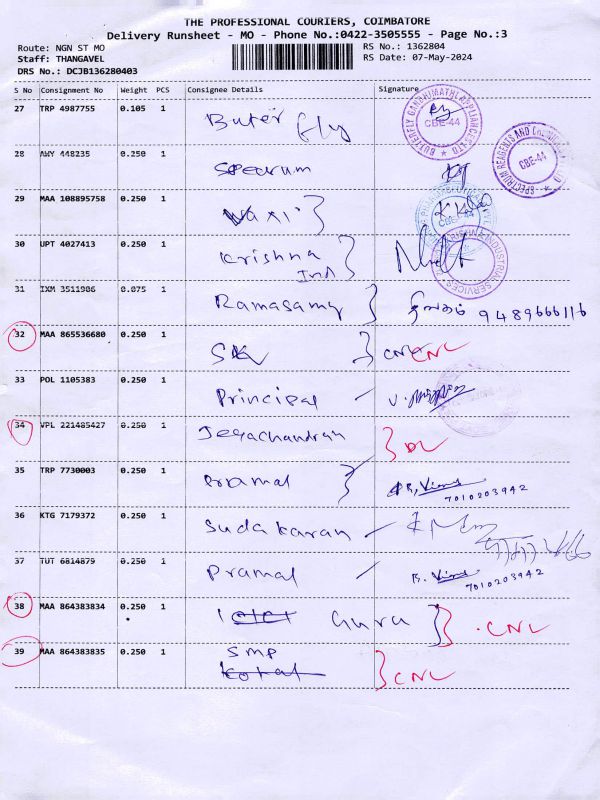 THE PROFESSIONAL COURIERS, COIMBATORE
Delivery Runsheet - MO - Phone No.:0422-3505555 - Page No.:3
Route: NGN ST MO
RS No.: 1362804
Staff: THANGAVEL
RS Date: 07-May-2024
DRS No.: DCJB136280403
S No Consignment No Weight PCS Consignee Details Signature
27 TRP 4987755 0.105 1 Buter fly
BUTTERFLY GANDHIMATHI APPLIANCES LTD CBE-44
28 AWY 448235 0.250 1 Spectrum
SPECTRUM REAGENTS AND CBE-44
29 MAA 108895758 0.250 1 Waxi
CBE-44
30 UPT 4027413 1 Krishna
Ind
KRISHNA INDUSTRIAL SERVICES
31 IXM 3511906 0.075 1 Ramasamy 9489666116
32 MAA 865536680 0.250 1 SK CNL
33 POL 1105383 0.250 1 Principal
34 VPL 221485427 0.250 1 Jegachandran DL
35 TRP 7730003 0.250 1 Pramal
7010203942
36 KTG 7179372 0.250 1 Sudakaran
37 TUT 6814879 0.250 1 Pramal
7010203942
38 MAA 864383834 0.250 1 Guru CNL
39 MAA 864383835 0.250 1 SMP CNL
Kotak